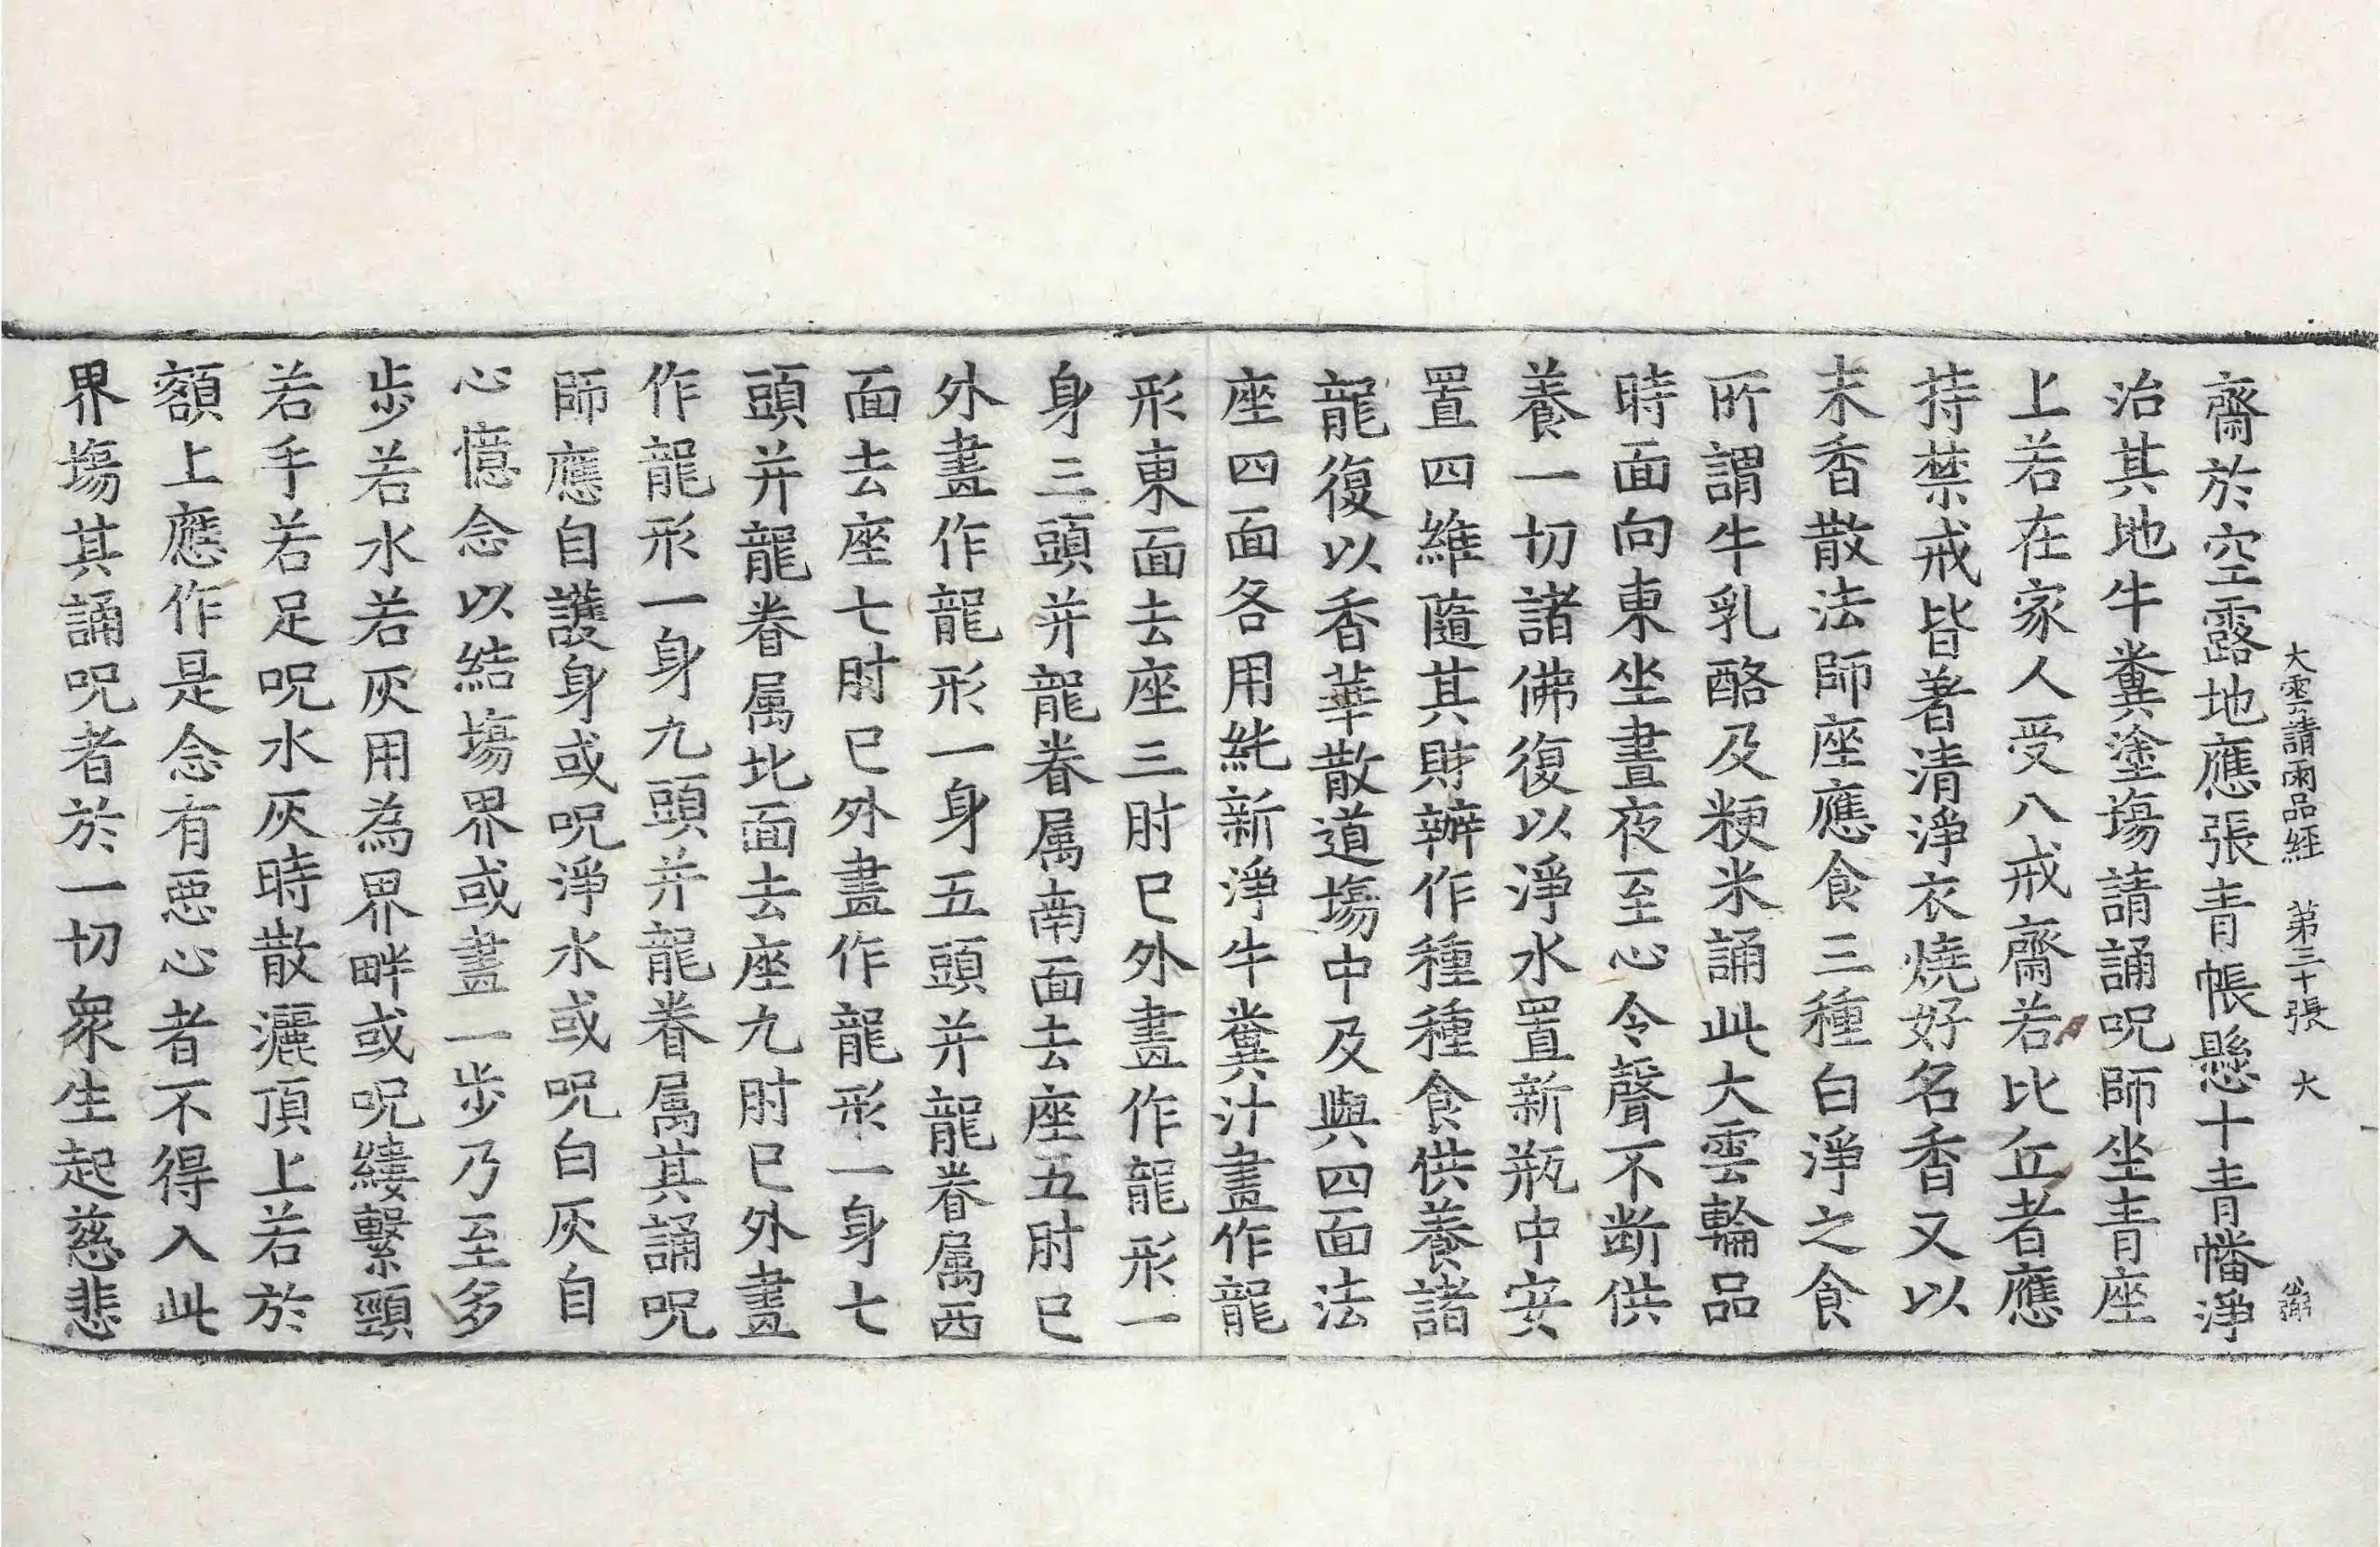 大雲請雨品経 第三十張 大
齋於空露地應張青帳懸十青幡淨
治其地牛糞塗塲請誦呪師坐青座
上若在家人受八戒齋若比丘者應
持禁戒皆著清淨衣燒好名香又以
末香散法師座應食三種白淨之食
所謂牛乳酪及粳米誦此大雲輪品
時面向東坐晝夜至心令聲不斷供
養一切諸佛復以淨水置新瓶中安
置四維隨其財辦作種種食供養諸
龍復以香華散道塲中及與四面法
座四面各用純新淨牛糞汁畫作龍
形東面去座三肘已外畫作龍形一
身三頭并龍眷属南面去座五肘已
外畫作龍形一身五頭并龍眷属西
面去座七肘已外畫作龍形一身七
頭并龍眷属北面去座九肘已外畫
作龍形一身九頭并龍眷属其誦呪
師應自護身或呪淨水或呪白灰自
心憶念以結塲界或畫一步乃至多
步若水若灰用為界畔或呪縷繫頸
若手若足呪水灰時散灑頂上若於
額上應作是念有惡心者不得入此
界塲其誦呪者於一切衆生起慈悲